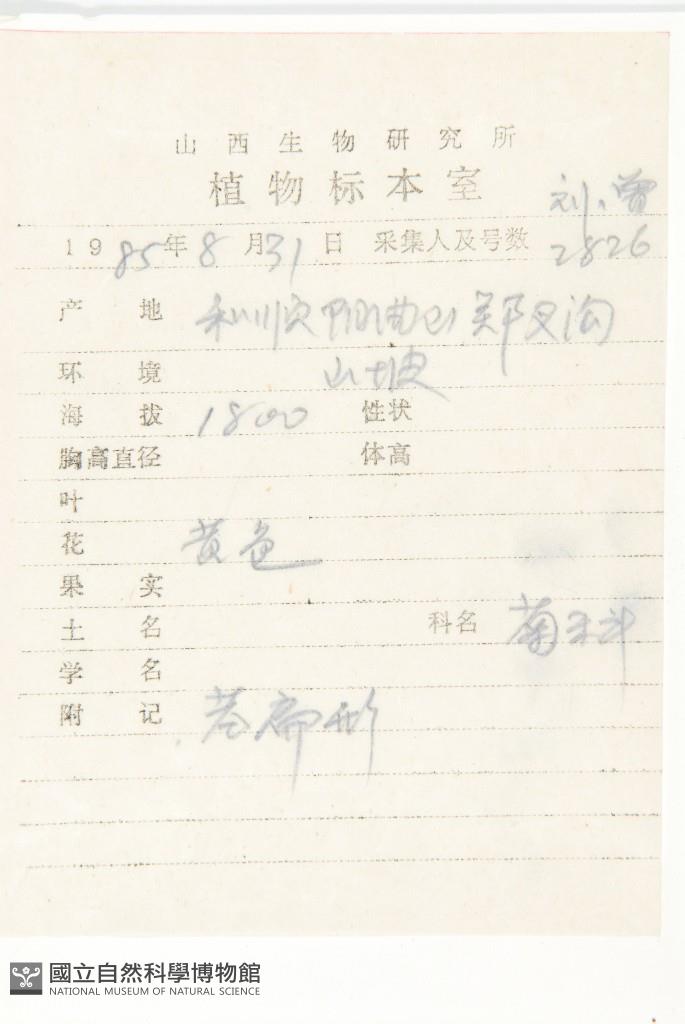 山西生物研究所
植物标本室
刘、曾
1985年8月31日 采集人及号数 2826
产地 和顺 阳曲山
环境 山坡
海拔 1800 性状
胸高直径 体高
叶
花 黄色
果实
土名 科名 菊科
学名
附记 扁形
國立自然科學博物館
NATIONAL MUSEUM OF NATURAL SCIENCE